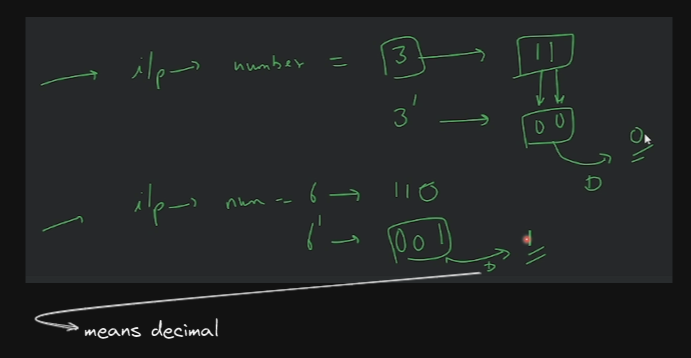 i/p → number = 3 → 11
3' → 00
D 0
i/p → num = 6 → 110
6' → 001 D 1
means decimal